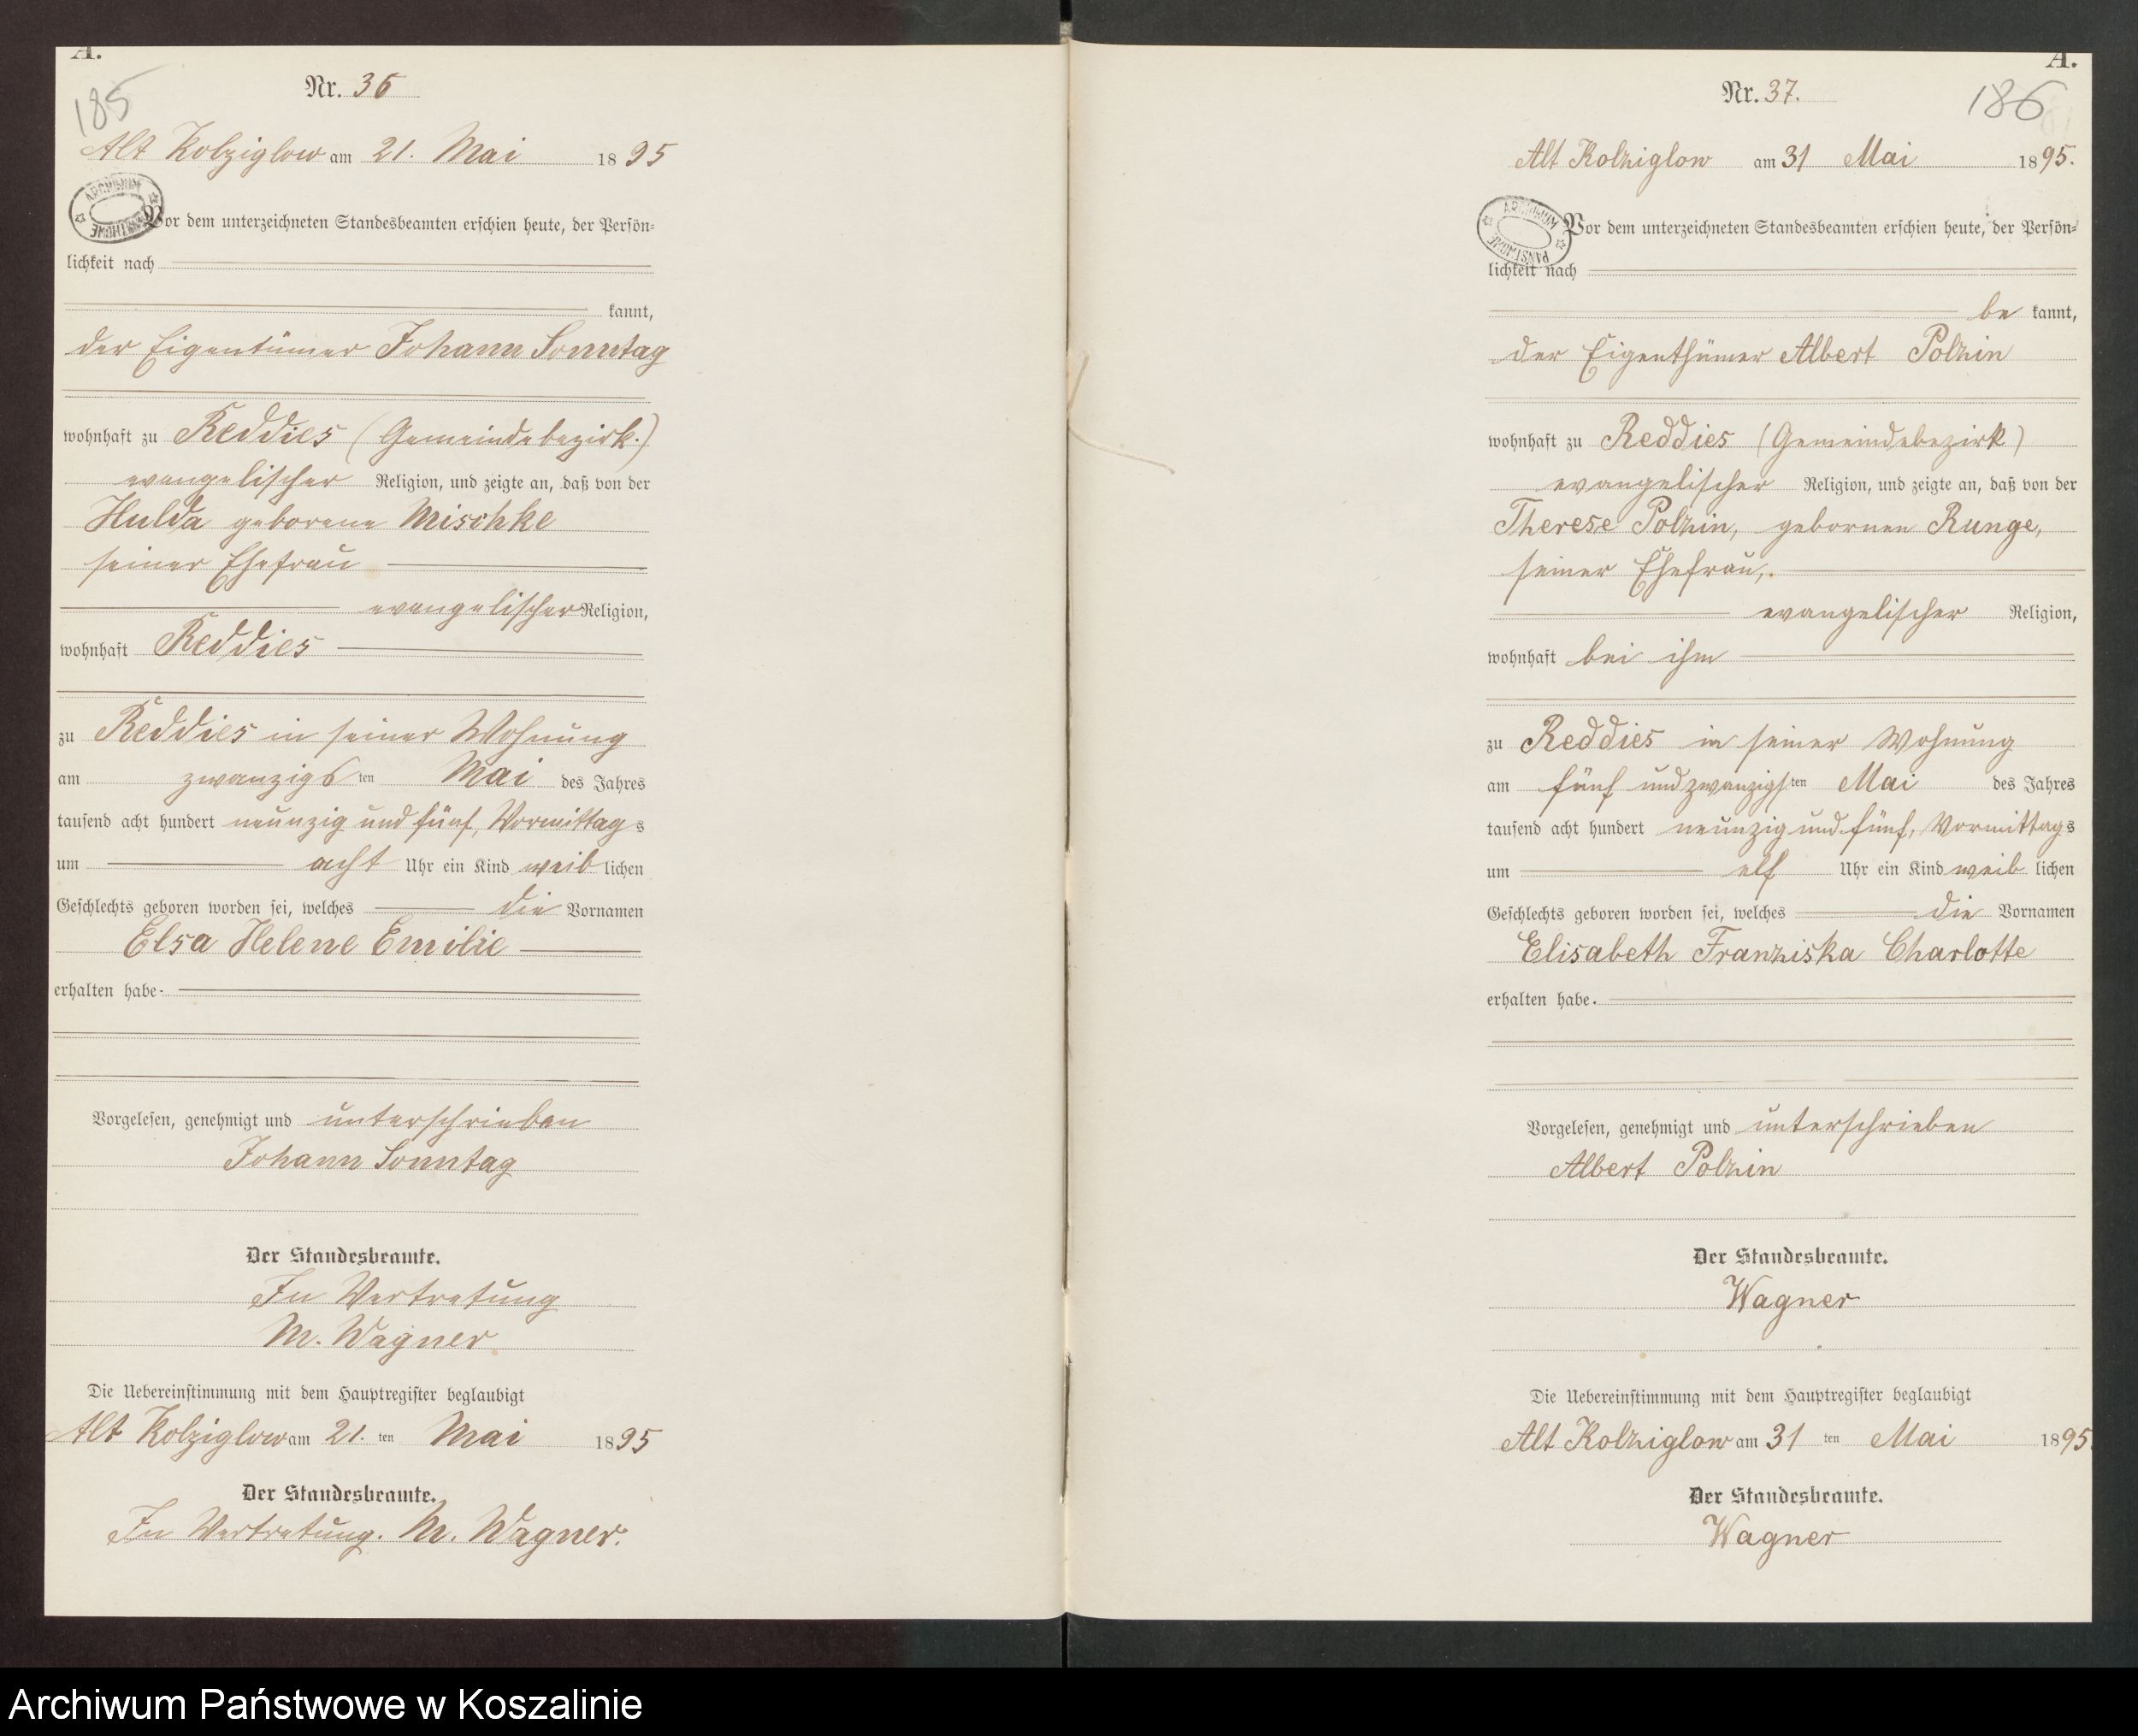 A.
185
Nr. 36
Alt Kolziglow am 21. Mai 1895
ARCHIWUM PAŃSTWOWE
Vor dem unterzeichneten Standesbeamten erschien heute, der Persön-
lichkeit nach
kannt,
der Eigentümer Johann Sonntag
wohnhaft zu Reddies (Gemeindebezirk.)
evangelischer Religion, und zeigte an, daß von der
Hulda geborene Mischke
seiner Ehefrau
evangelischer Religion,
wohnhaft Reddies
zu Reddies in seiner Wohnung
am zwanzigsten Mai des Jahres
tausend acht hundert neunzig und fünf, Vormittags
um acht Uhr ein Kind weiblichen
Geschlechts geboren worden sei, welches die Vornamen
Elsa Helene Emilie
erhalten habe.
Vorgelesen, genehmigt und unterschrieben
Johann Sonntag
Der Standesbeamte.
In Vertretung
M. Wagner
Die Uebereinstimmung mit dem Hauptregister beglaubigt
Alt Kolziglow am 21. ten Mai 1895
Der Standesbeamte.
In Vertretung. M. Wagner.
A.
186
Nr. 37.
Alt Kolziglow am 31 Mai 1895.
ARCHIWUM PAŃSTWOWE
Vor dem unterzeichneten Standesbeamten erschien heute, der Persön-
lichkeit nach
be kannt,
der Eigenthümer Albert Polzin
wohnhaft zu Reddies (Gemeindebezirk)
evangelischer Religion, und zeigte an, daß von der
Therese Polzin, gebornen Runge,
seiner Ehefrau,
evangelischer Religion,
wohnhaft bei ihm
zu Reddies in seiner Wohnung
am fünf undzwanzigsten Mai des Jahres
tausend acht hundert neunzig und fünf, Vormittags
um elf Uhr ein Kind weiblichen
Geschlechts geboren worden sei, welches die Vornamen
Elisabeth Franziska Charlotte
erhalten habe.
Vorgelesen, genehmigt und unterschrieben
Albert Polzin
Der Standesbeamte.
Wagner
Die Uebereinstimmung mit dem Hauptregister beglaubigt
Alt Kolziglow am 31 ten Mai 1895.
Der Standesbeamte.
Wagner
Archiwum Państwowe w Koszalinie